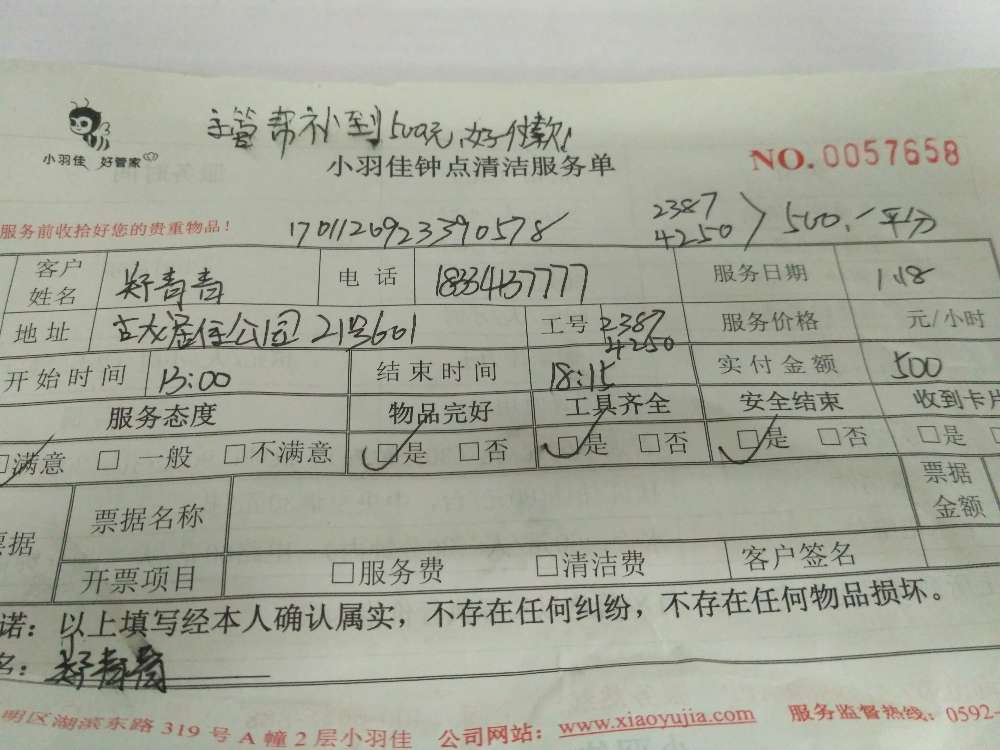 主管帮补到500元,好付款!
小羽佳 好管家
小羽佳钟点清洁服务单
NO.0057658
服务前收拾好您的贵重物品!
1701126923390578
2387
4250
500,/平分
客户姓名 郑青青 电话 18334137777 服务日期 1.18
地址 古龙居住公园21号601 工号 2387 4250 服务价格 元/小时
开始时间 13:00 结束时间 18:15 实付金额 500
服务态度 物品完好 工具齐全 安全结束 收到卡片
□满意 □一般 □不满意 □是 □否 □是 □否 □是 □否 □是
票据 票据名称 票据金额
开票项目 □服务费 □清洁费 客户签名
诺:以上填写经本人确认属实,不存在任何纠纷,不存在任何物品损坏。
名:郑青青
明区湖滨东路319号A幢2层小羽佳 公司网站:www.xiaoyujia.com 服务监督热线:0592-